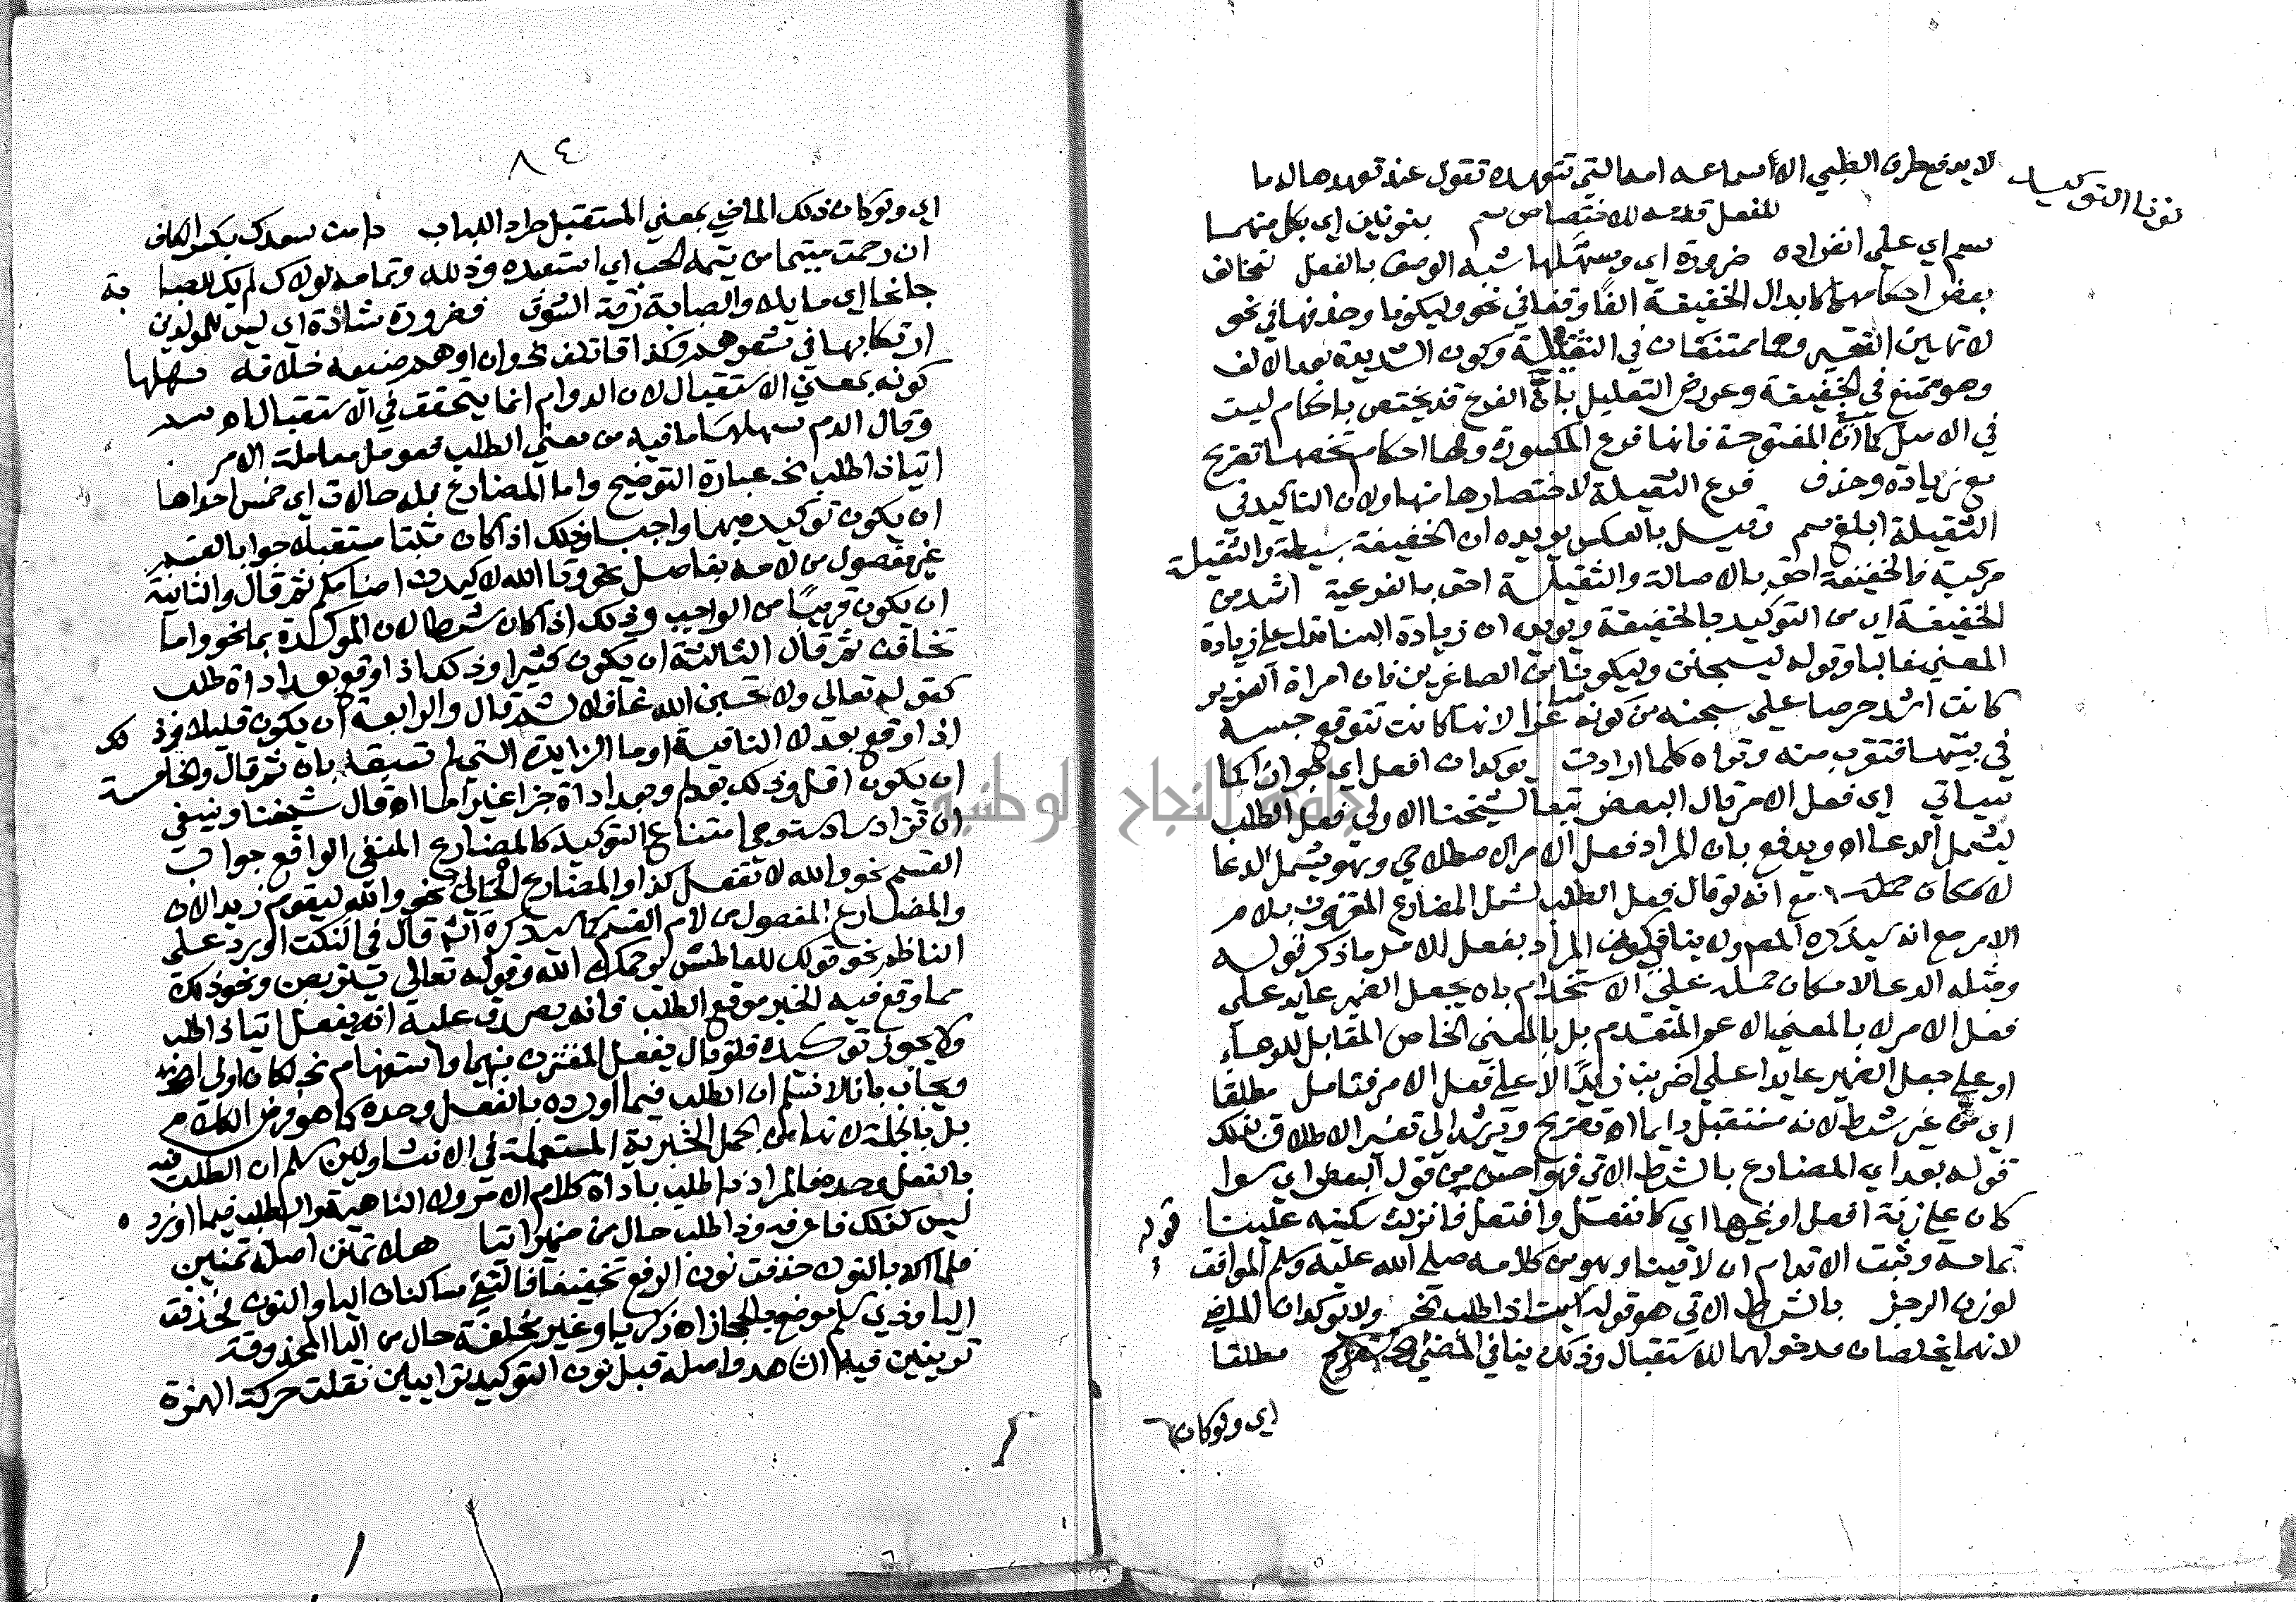 نونا التوكيد
لا يدفع طرق الظبي الا اسماعه امها التي تتعهده تقول عند تعهدها له ما
للفعل قدمه للاختصاص سم بنونين اي بكل منهما
سم اي على انفراده ضرورة اي وسهلها شبه الوصف بالفعل لتخالف
بعض احكامهما كابدال الخفيفة الفا وقفا في نحو وليكونا وحذفها في نحو
لا تهين الفقير وهما ممتنعان في الثقيلة وكون الشديدة بعد الالف
وهو ممتنع في الخفيفة وعورض التعليل بان الفرع قد يختص باحكام ليست
في الاصل كما ان المفتوحة فانها فرع المكسورة ولها احكام تخصها تصريح
مع زيادة وحذف فرع الثقيلة لاختصارها منها ولان التاكيد في
الثقيلة ابلغ سم وقيل بالعكس يويده ان الخفيفة بسيطة والثقيلة
مركبة فالخفيفة احق بالاصالة والثقيلة احق بالفرعية اشد من
الخفيفة اي من التوكيد بالخفيفة ويويده ان زيادة البنا تدل على زيادة
المعنى غالبا وقوله ليسجنن وليكونا من الصاغرين فان امراة العزيز
كانت اشد حرصا على سجنه من كونه صاغرا لانها كانت تتوقع حبسه
في بيتها فتقرب منه وتراه كلما ارادت يوكدان افعل اي جوازا كما
سياتي اي فعل الامر قال البعض تبعا لشيخنا الاولى فعل الطلب
ليشمل الدعا اه ويدفع بان المراد فعل الامر الاصطلاحي وهو يشمل الدعا
لامكان حمله مع انه لو قال فعل الطلب لشمل المضارع المقرون بلام
الامر مع انه سيذكره المص ولا ينافي كون المراد بفعل الامر ما ذكر قوله
ومثله الدعا لامكان حمله على الاستخدام بان يجعل الضمير عايد على
فعل الامر لا بالمعنى الاعم المتقدم بل بالمعنى الخاص المقابل للدعاء
او على جعل الضمير عايدا على اضربن زيدا لا على فعل الامر فتامل مطلقا
اي من غير شرط لانه مستقبل دايما اه تصريح ويرشد الى تفسير الاطلاق بذلك
قوله بعد اي المضارع بالشرط الاتي فهو احسن من قول البعض اي سوا
كان على زنة افعل او غيرها اي كانفعل وافتعل فانزلن سكينة علينا قوله
تمامه وثبت الاقدام ان لاقينا وهو من كلامه صلى الله عليه وسلم الموافق
لوزن الرجز بالشرط الاتي هو قوله اتيا ذا طلب الخ ولا يوكدان الماضي
لانهما يخلصان مدخولهما للاستقبال وذلك ينافي المضي تصريح مطلقا
اي ولو كان
٨٤
اي ولو كان ذلك الماضي بمعنى المستقبل طردا للباب دامت سعدك بكسر الكاف
ان رحمت متيما من تيمه الحب اي استعبده وذلله وتمامه لولاك لم يك للصبابة
جانحا اي مايلا والصبابة رقة الشوق فضرورة شاذة اي ليس للمولدين
ارتكابها في شعرهم وكذا قاتلف نحو ان اوهم صنيعه خلافه سهلها
كونه بمعنى الاستقبال لان الدوام انما يتحقق في الاستقبال اه سيد
وقال الدم سهلها ما فيه من معنى الطلب فعومل معاملة الامر
اتيا ذا طلب الخ عبارة التوضيح واما المضارع فله حالات اي خمس احداها
ان يكون توكيده بهما واجبا وذلك اذا كان مثبتا مستقبلا جوابا لقسم
غير مفصول من لامه بفاصل نحو وتالله لاكيدن اصنامكم ثم قال والثانية
ان يكون قريبا من الواجب وذلك اذا كان شرطا لان الموكدة بما نحو واما
تخافن ثم قال الثالثة ان يكون كثيرا وذلك اذا وقع بعد اداة طلب
كقوله تعالى ولا تحسبن الله غافلا ثم قال والرابعة ان يكون قليلا وذلك
اذا وقع بعد لا النافية او ما الزايدة التي لم تسبق بان ثم قال والخامسة
ان يكون اقل وذلك بعد لم وبعد اداة جزا غير اما اه قال شيخنا وينبغي
ان تزاد سادسة وهي امتناع التوكيد كالمضارع المنفي الواقع جواب
القسم نحو والله لا تفعل كذا والمضارع الحالي نحو والله ليقوم زيد الان
والمضارع المفصول من لام القسم كما سيذكره الش قال في النكت اورد على
الناظم نحو قولك للعاطس يرحمك الله وقوله تعالى يتربصن ونحو ذلك
مما وقع فيه الخبر موقع الطلب فانه يصدق عليه انه يفعل اتيا ذا طلب
ولا يجوز توكيده فلو قال يفعل المقترن بنهي او استفهام الخ لكان اولى
ويجاب بانا لا نسلم ان الطلب فيما اورده بالفعل وحده كما هو فرض الكلام
بل بالجملة لانها من الجمل الخبرية المستعملة في الانشا ولين سلم ان الطلب فيه
بالفعل وحده فالمراد ذا طلب باداة كلام الامر ولا الناهية والطلب فيما اورد
ليس كذلك فاعرفه وذا طلب حال من ضمير اتيا هلا تمنن اصله تمنين
فلما اكد بالنون حذفت نون الرفع تخفيفا فالتقى ساكنان اليا والنون فحذفت
اليا وذي سلم موضع بالحجاز اه زكريا وغير مخلفة حال من اليا المحذوفة
تريينن فيه الشاهد واصله قبل نون التوكيد ترايين نقلت حركة الهمزة